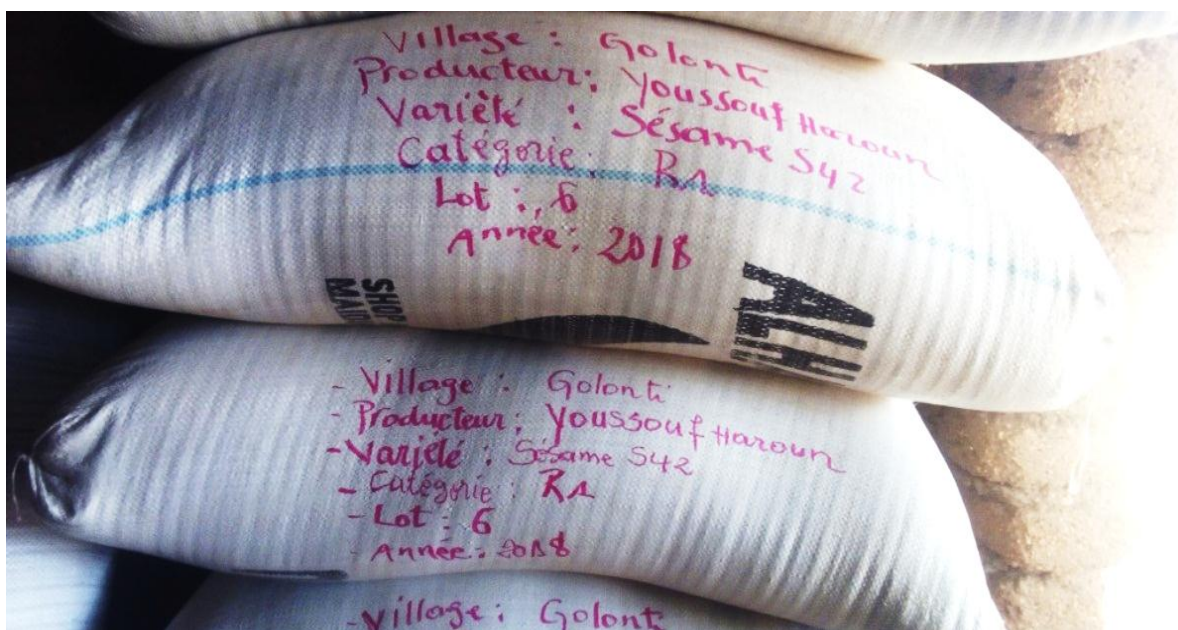 Village : Golonti
Producteur: Youssouf Haroun
Variété : Sésame S42
Catégorie: R1
Lot : 6
Année: 2018
SHOP
ALH
- Village : Golonti
- Producteur: Youssouf Haroun
- Variété : Sésame S42
- Catégorie : R1
- Lot : 6
- Année: 2018
- Village: Golonti